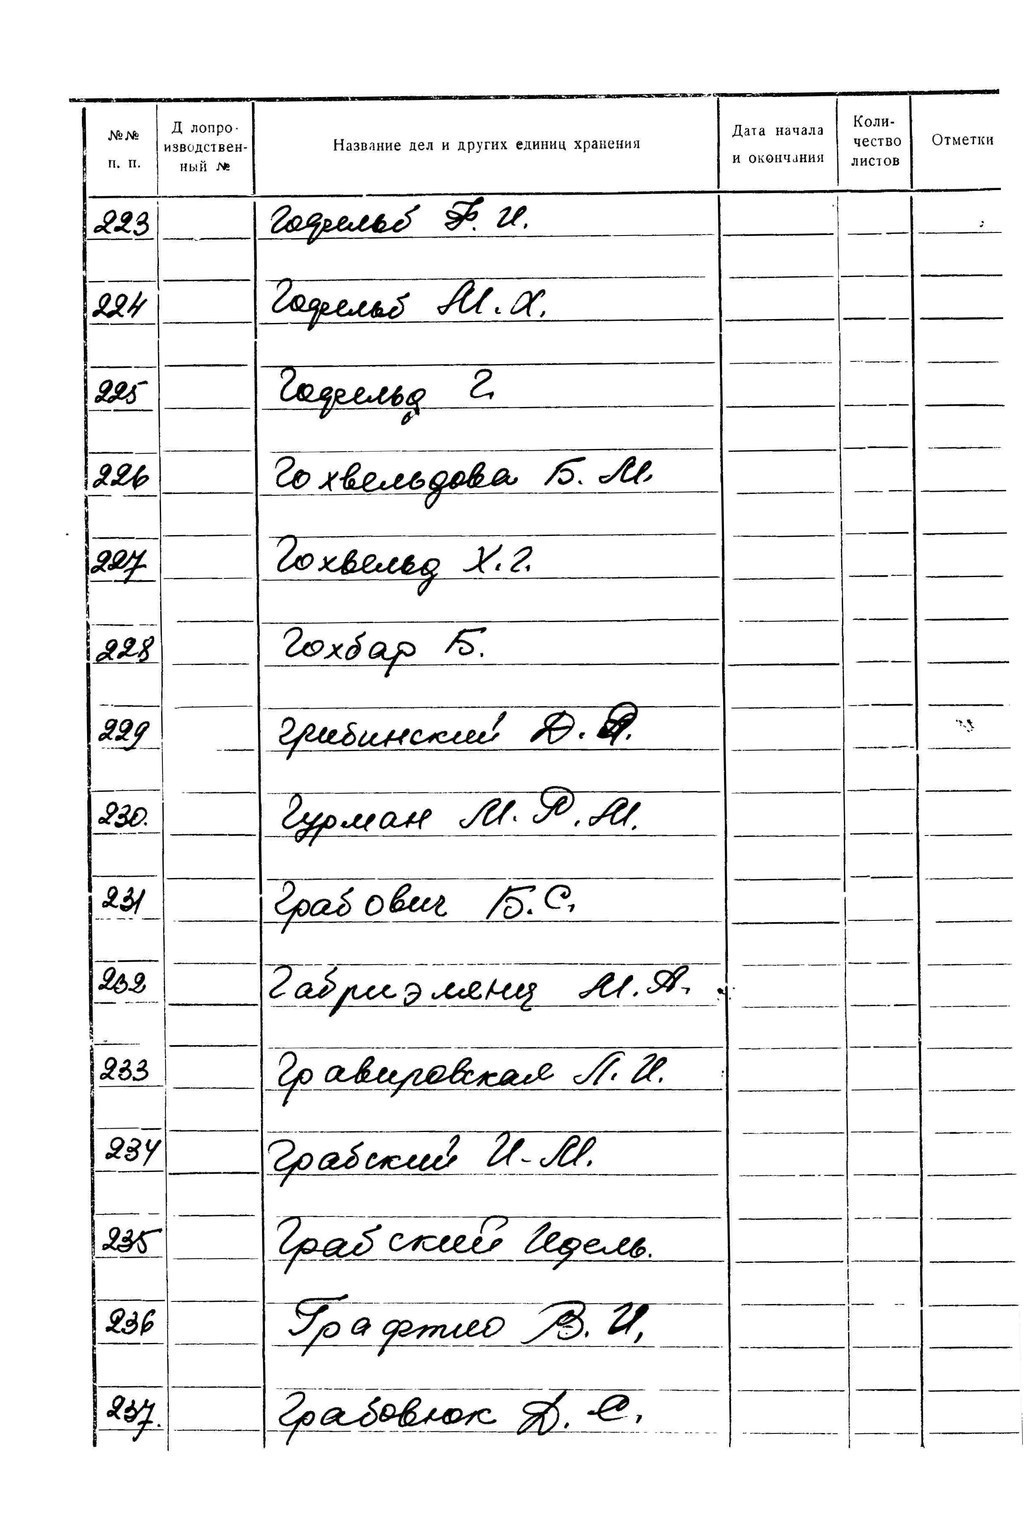 №№ п. п. Д лопро- изводствен- ный № Название дел и других единиц хранения Дата начала и окончания Коли- чество листов Отметки
223 Гофельб Ф. И.
224 Гофельб М. Х.
225 Гофельд Г.
226 Гохвельдова Б. М.
227 Гохвельд Х. Г.
228 Гохбар Б.
229 Грибинский Д. Я.
230. Гурман М. Р. М.
231 Грабович Б. С.
232 Габриэлянц М. А.
233 Гравировская Л. И.
234 Грабский И-М.
235 Грабский Идель.
236 Графтио В. И.
237. Грабовнюк Д. С.